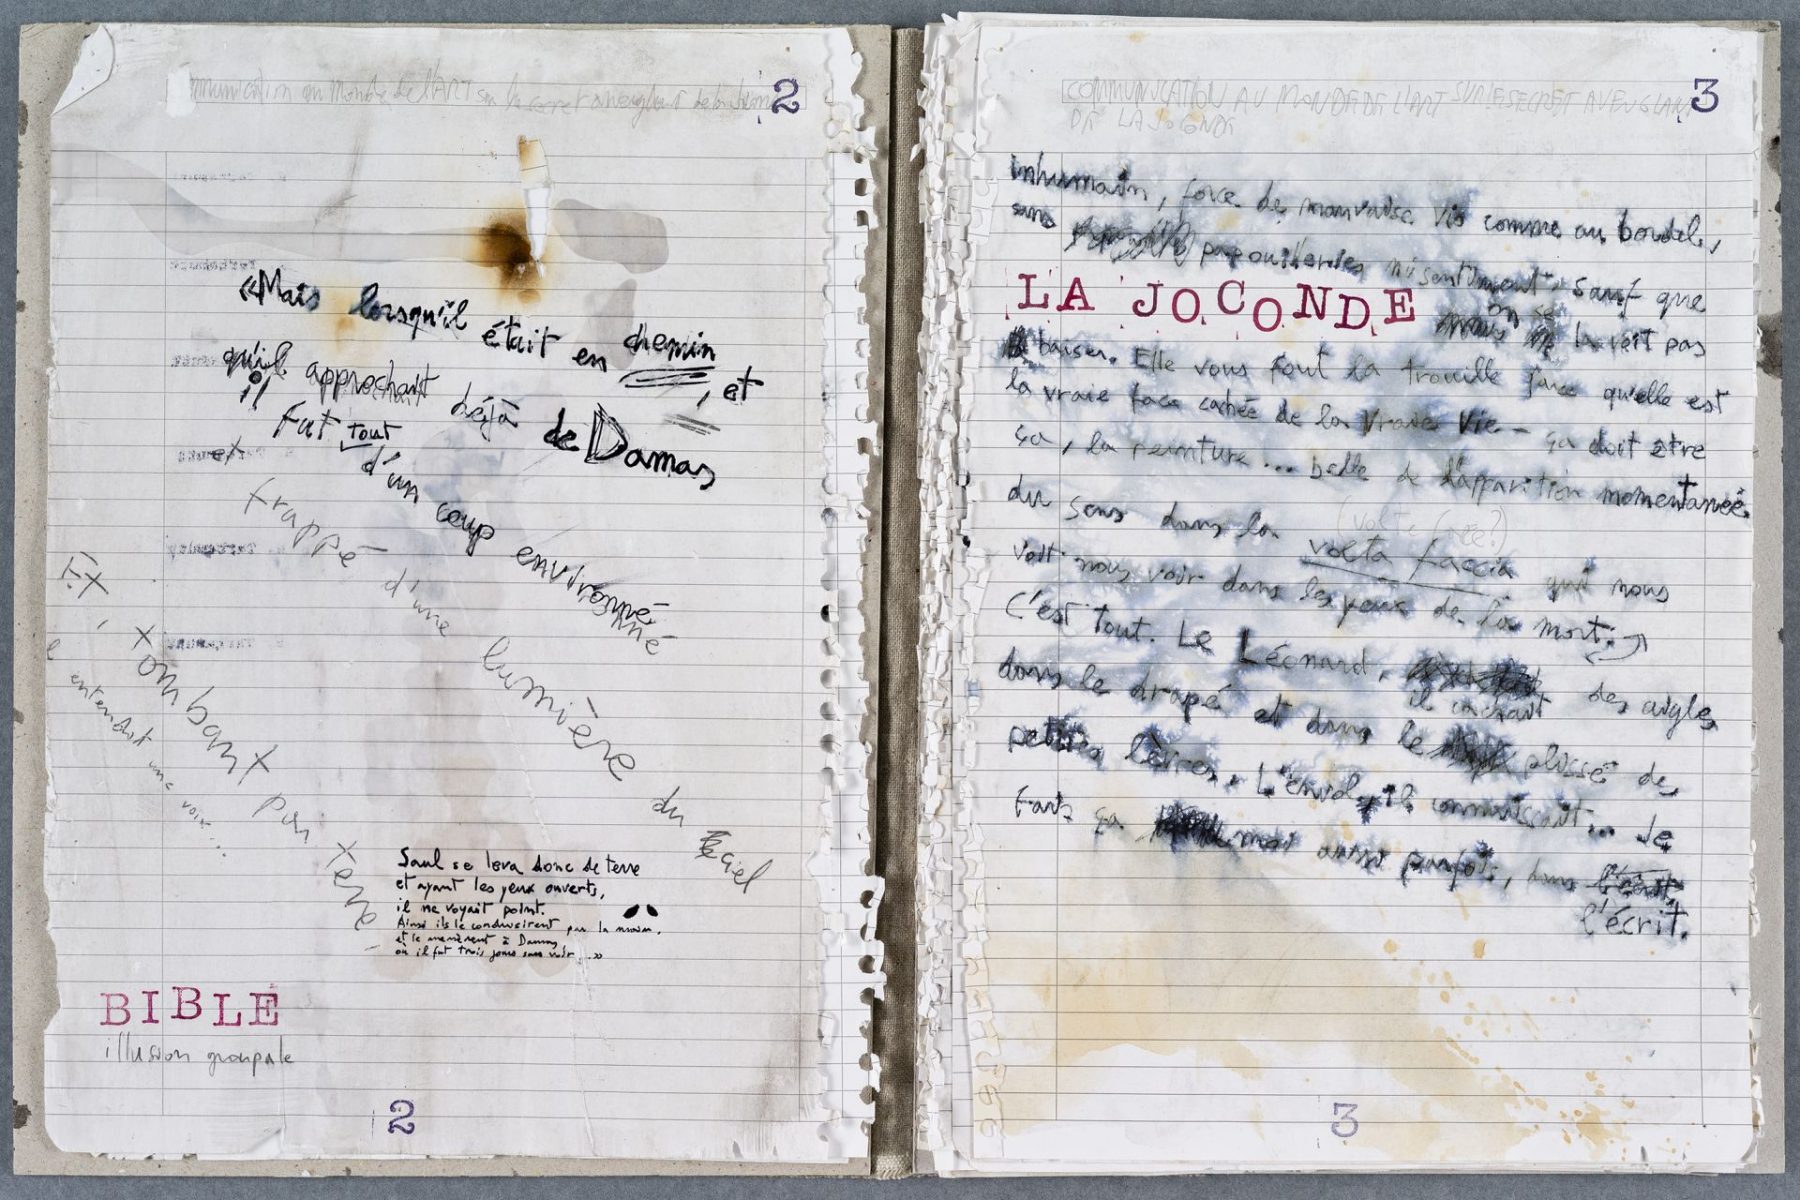 2
«Mais lorsqu'il était en chemin, et
qu'il approchait déjà de Damas
il fut tout d'un coup environné
environné
frappé d'une lumière du ciel
Et, tombant par terre,
entendit une voix...
Saul se leva donc de terre
et ayant les yeux ouverts,
il ne voyait point.
Ainsi ils le conduisirent par la main,
et le menèrent à Damas
où il fut trois jours sans voir...»
BIBLE
illusion groupale
2
3
COMMUNICATION AU MONDE DE L'ART SUR LE SECRET AVEUGLANT
DE LA JOCONDE
inhumain, force de mauvaise vie comme au bordel,
sans papouilleries ni sentiment, sauf que
LA JOCONDE on se la voit pas
baiser. Elle vous fout la trouille parce qu'elle est
la vraie face cachée de la vraie vie - ça doit être
ça, la peinture... belle de l'apparition momentanée
du sens dans la (volte face?)
volta faccia qui nous
voit nous voir dans les yeux de la mort.
C'est tout. Le Léonard, il cachait des aigles
dans le drapé et dans le plissé des
petites lèvres. L'envol, il connaissait... Je
fais ça moi aussi parfois, dans
l'écrit.
3